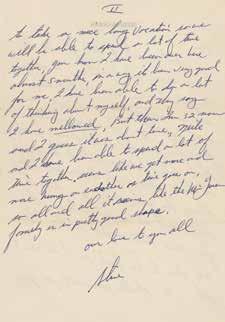 II
to take a nice long vacation so we
will be able to spend a lot of time
together, you know I have been over here
almost 5 months, in a way it has been very good
for me I have been able to do a lot
of thinking about myself, and they say
I have mellowed, But then I'm 32 now
and I guess its about time, Neile
and I have been able to spend a lot of
time together, seems like we get more and
more hung on each other as time goes on,
so all and all it seems like the Mc Queen
family is in pretty good shape.
our love to you all
Steve